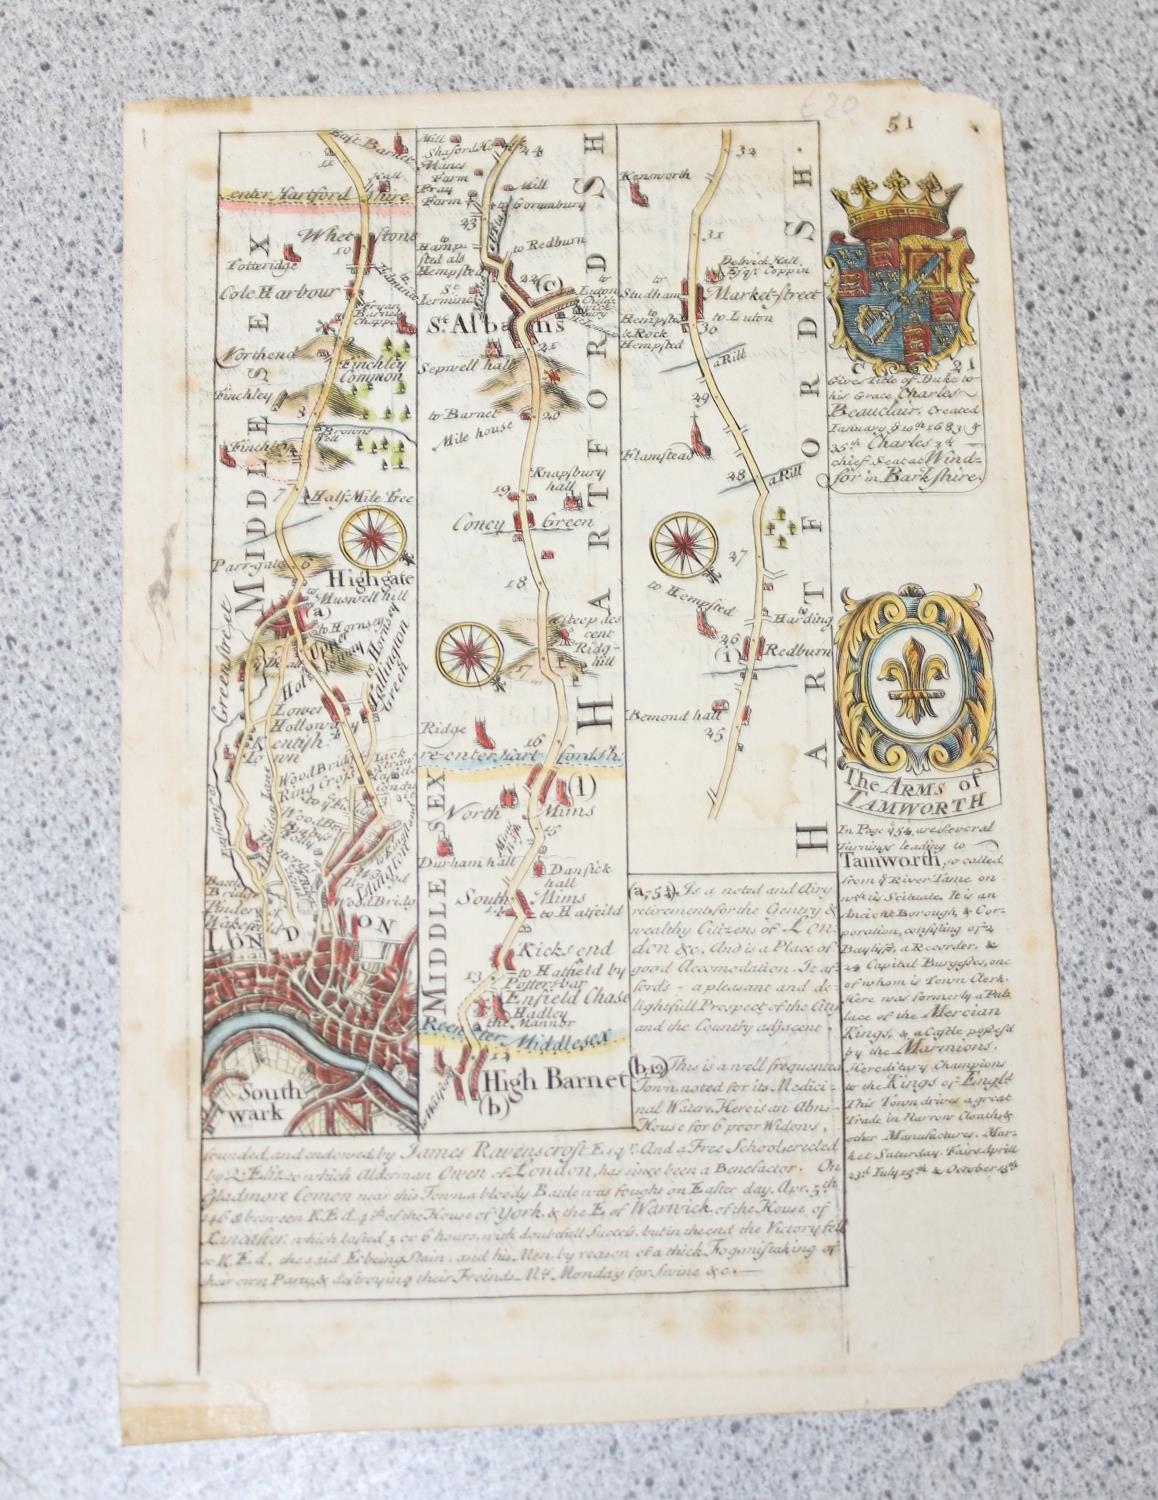 £20
51
East Barnet
11
Hall
enter Hartford Shire
Whetstone
10
Totteridge
to Edmunton
Cole Harbour
Fryan
Barnet
Chappel
9
Northend
Finchley
Common
Finchley
8
Browns
Well
Finchley
7
Half Mile Tree
Parr-gate
6
Highgate
to Muswell hill
(a)
to Hornsey
Upper
Lower
Holloway
Kentish
Town
Green Street
to Hornsey
Tallington
Green
Wood Bridg
Ring Cross
Islington
Battle
Bridge
Pinder
Wakefeild
Wood Bridg
LONDON
South
wark
MIDDLESEX
Mill
Shaford Ho
24
Manes
Farm
Pray
Farm
Mill
to Gorambury
23
to
Hamp-
sted als
Hempsted
to Redburn
22
(c)
to
Luton
St.
Jermine
St. Albans
21
Sopwell hall
to Barnet
20
Mile house
Knapsbury
hall
19
Coney Green
18
Steep des
cent
Ridg-
hill
17
Ridge
16
re-enter hart fordsh:
(1)
North Mims
15
Mims wash
Durham hall
Dansick
hall
South Mims
14
to Hatfeild
Kicks end
13
to Hatfield by
Potters bar
Enfield Chase
Hadley
the Mannor
Reenter Middlesex
12
High Barnet
(b)
MIDDLESEX
HARTFORDSH
32
Kensworth
31
Delwick Hall
Esqr. Coppin
to
Studham
Market-street
to
Hempsted
& Rock
Hempsted
to Luton
30
a Rill
29
Flamstead
28
a Rill
27
to Hempsted
to
Harding
26
(1)
Redburn
Bemond hall
25
HARTFORDSH.
C 21
Gives title of Duke to
his Grace Charles
Beauclair, Created
January ye 10th 1683 ye
35th Charles 2d
chief Seat at Wind=
sor in Barkshire.
The ARMS of
TAMWORTH
In Page 54, are several
Turnings leading to
Tamworth, so called
from ye River Tame on
wch its Scituate. It is an
Ancient Borough, & Cor-
poration, consisting of 2
Bayliffs, a Recorder, &
24 Capital Burgesses, one
of whom is Town Clerk.
Here was formerly a Pal-
lace of the Mercian
Kings, & a Castle possess'd
by the Marmions,
Hereditary Champions
to the Kings of Engld
This Town drives a great
Trade in Narrow Cloaths, &
other Manufactures. Mar-
ket Saturday. Fairs April
23d July 15th & October 15th
(a.54) Is a noted and Airy
retirement for the Gentry &
wealthy Citizens of Lon-
don &c. And is a Place of
good Accomodation. It af-
fords a pleasant and de-
lightfull Prospect of the City
and the Country adjacent.
(b.12) This is a well frequented
Town, noted for its Medici-
nal Waters. Here is an Alms-
House for 6 poor Widows,
founded, and endowed by James Ravenscroft Esqr. And a Free School erected
by Q. Eliz. to which Alderman Owen of London, has since been a Benefactor. On
Gladmore Comon near this Town a bloody Battle was fought on Easter day, Apr. 5th
1468 between K.Ed. 4th of the House of York, & the E. of Warwick of the House of
Lancaster, which lasted 5 or 6 hours, with doubtfull Success, but in the end the Victory fell
to K.Ed. the said E. being Slain, and his Men by reason of a thick Fog mistaking of
their own Party, & destroying their Freinds. Mt. Monday for Swine &c.